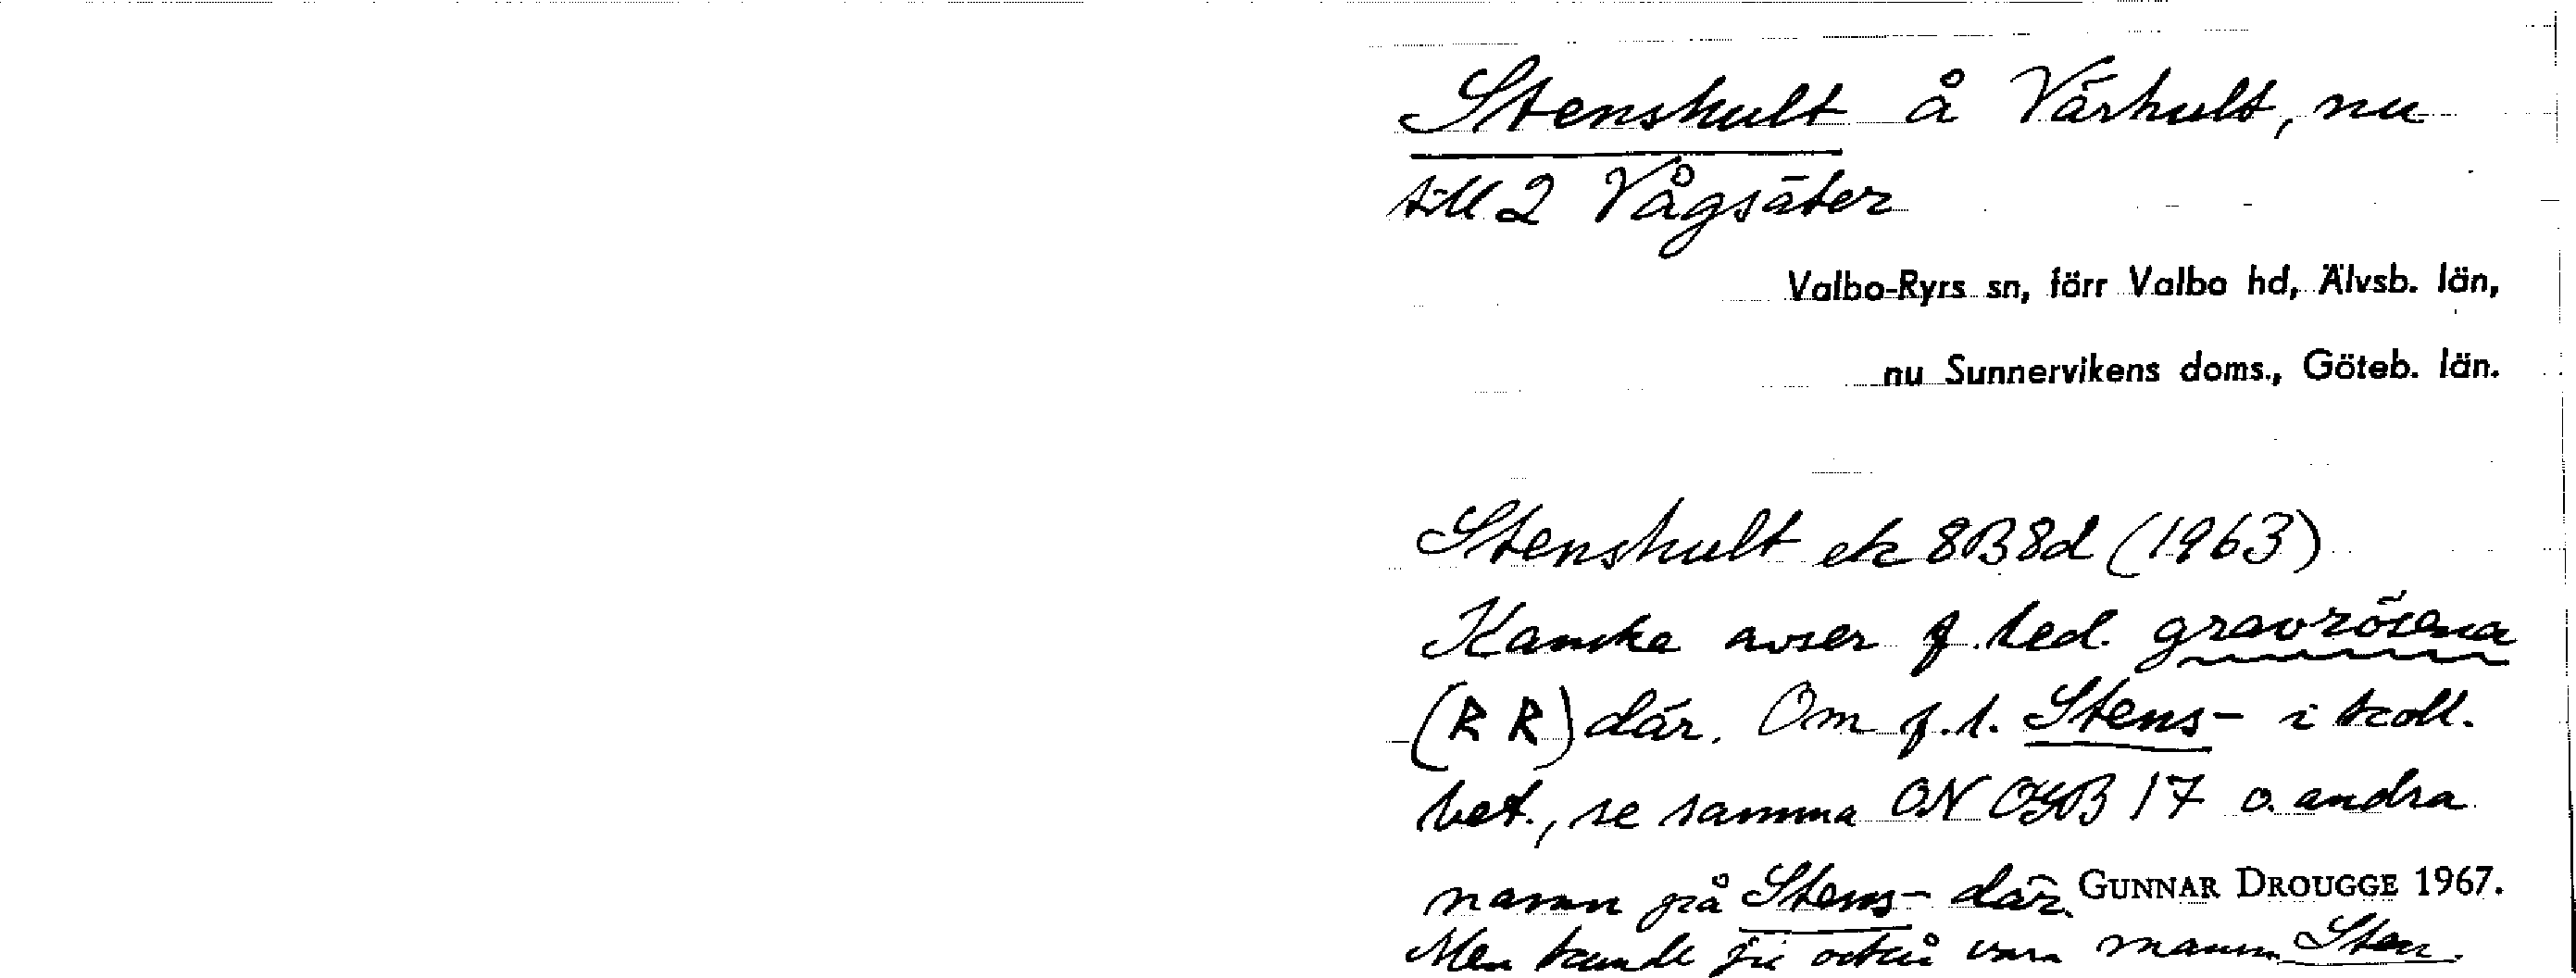 Stenshult å Värhult, nu
till 2 Vågsäter
Valbo-Ryrs sn, förr Valbo hd, Älvsb. län,
nu Sunnervikens doms., Göteb. län.
Stenshult ek 8B8d (1963)
Kanske avser f. led. gravrösena
(R R) där. Om f.l. Stens- i koll.
bet., se samma ON OGB 17 o. andra
namn på Stens- där. GUNNAR DROUGGE 1967.
Men kunde ju också vara mansn. Sten.